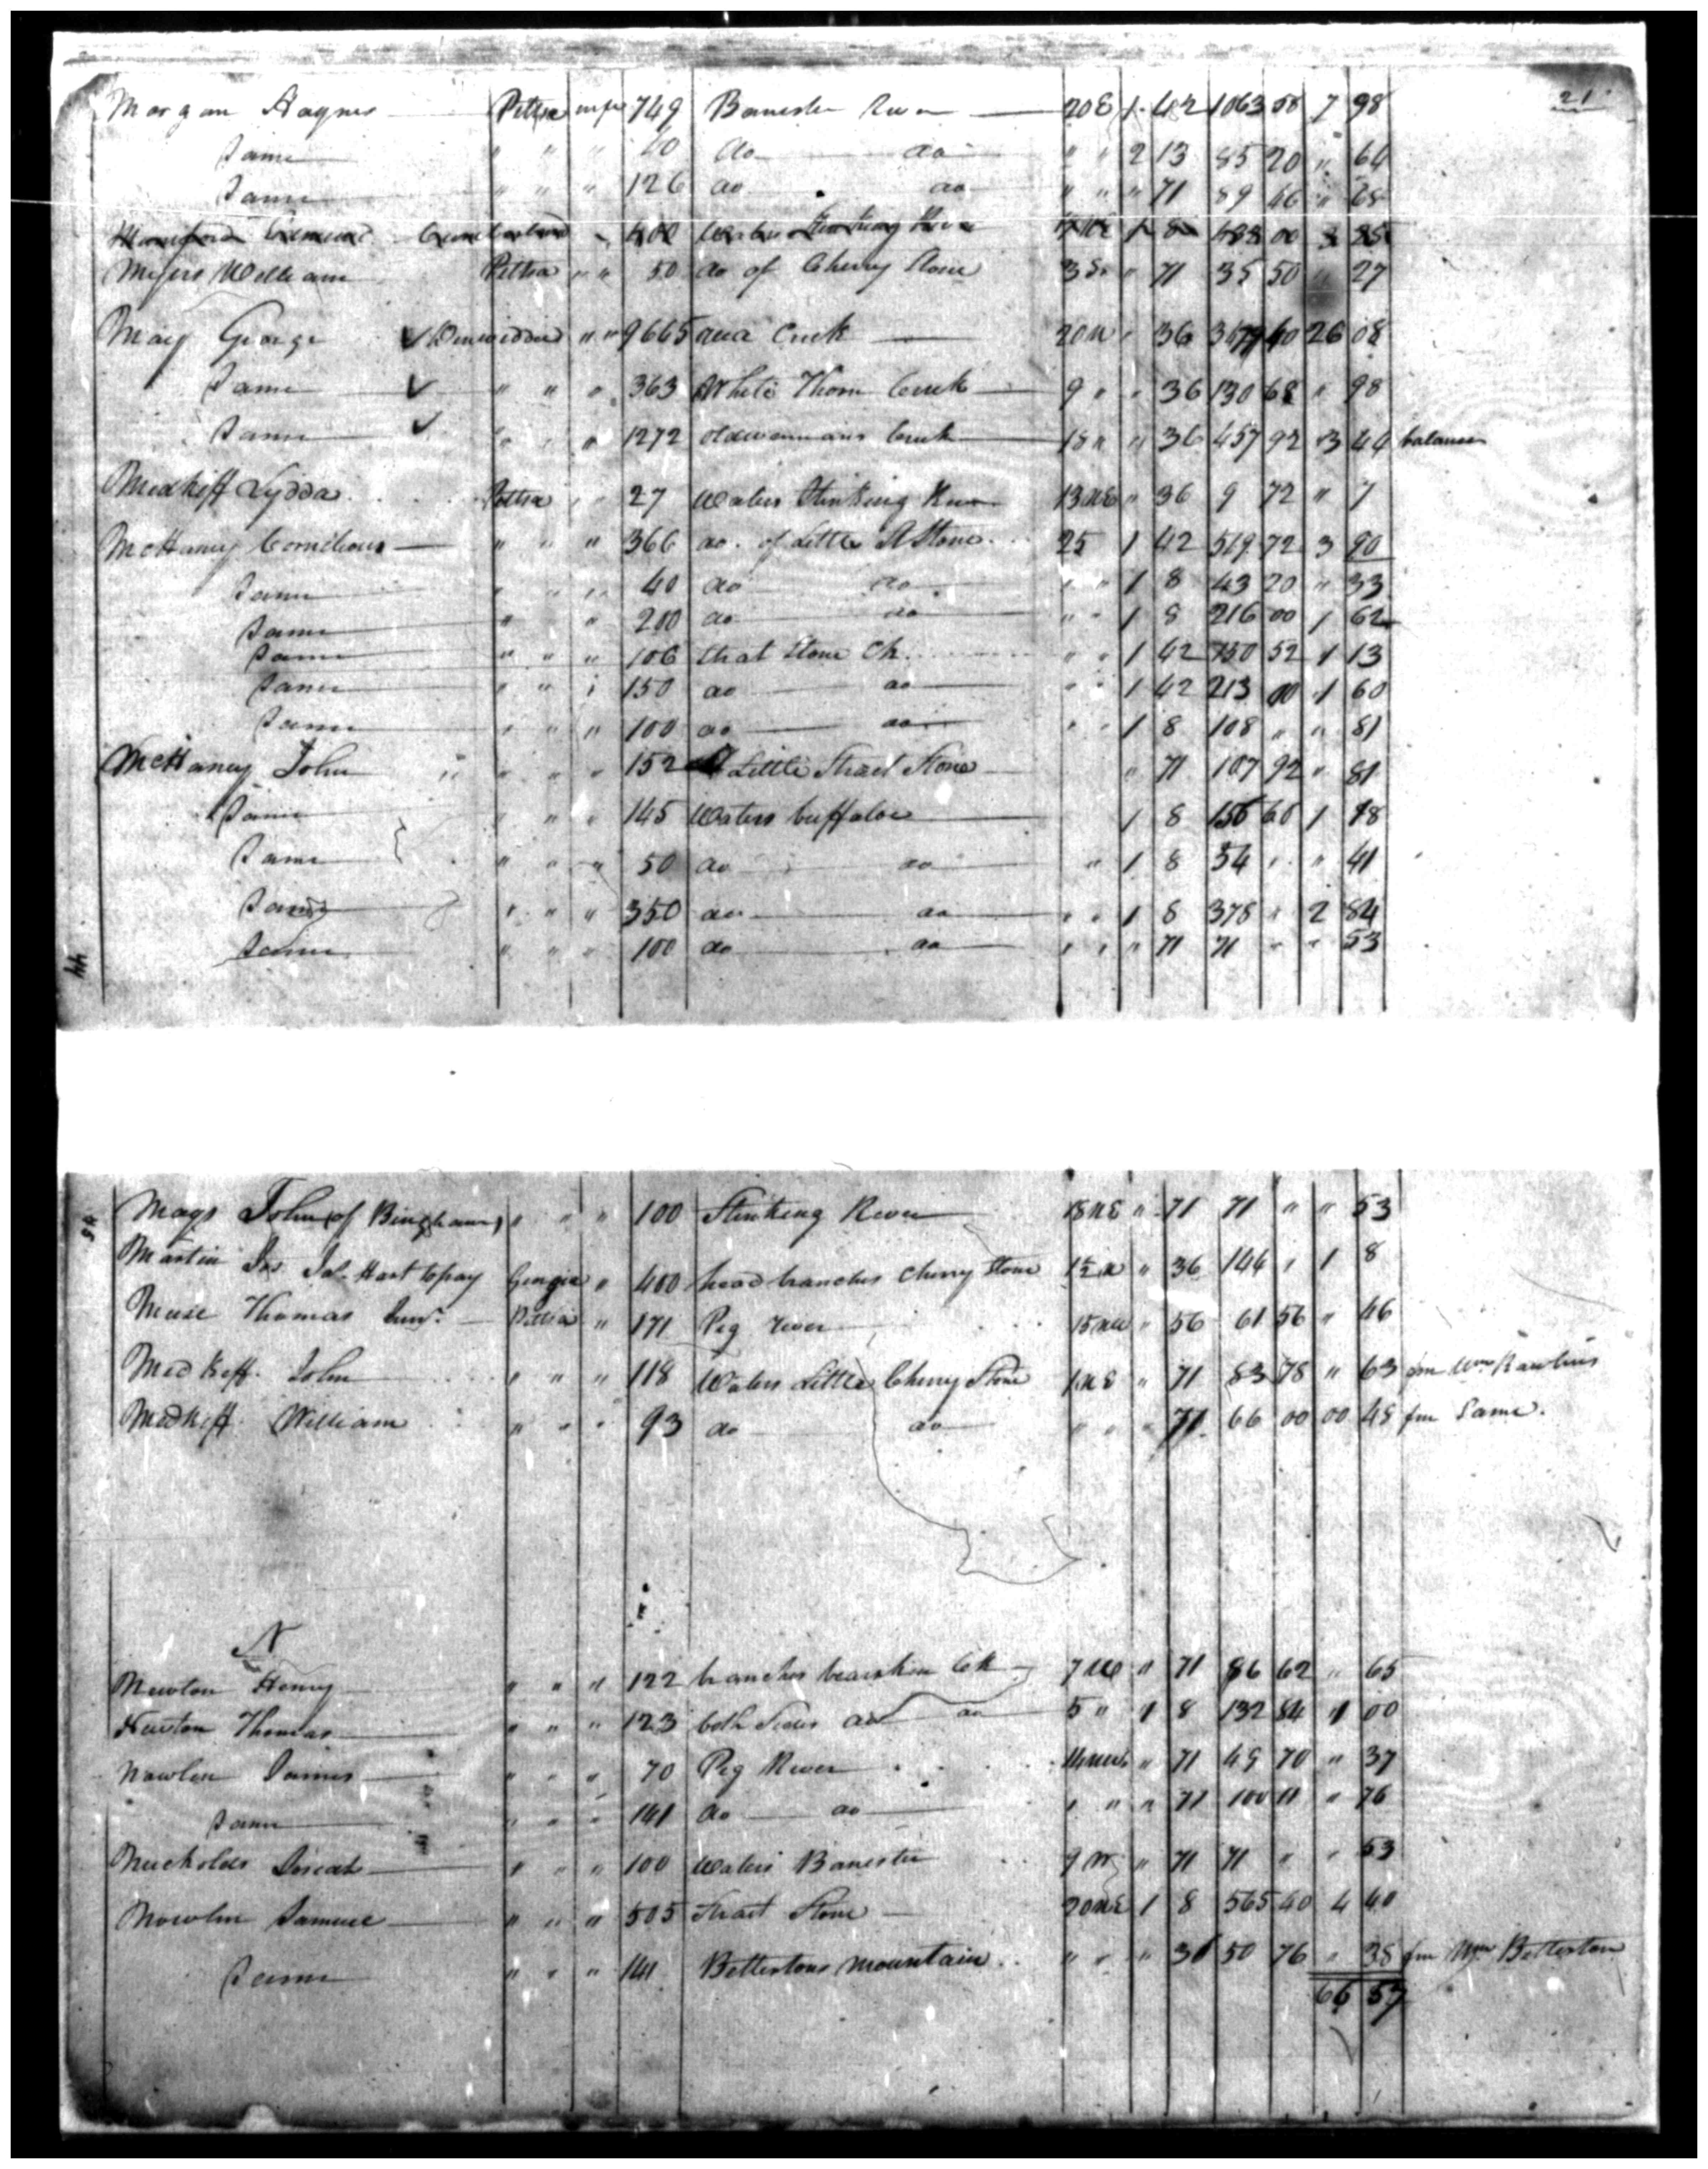 21
Morgan Haynes Pittsa 749 Banester River 20 E 1 42 1063 58 7 98
Same " " " 40 do do " " 2 13 85 20 " 64
Same " " " 126 do do " " " 71 89 46 " 68
Cumberland 400 Waters Stinking River 1 8 432 00 3
Myers William Pittsa " " 50 do of Cherry Stone 3 " 71 35 50 27
May George Dinwiddie " " 9665 Creek 20 " 36 3479 40 26 08
Same " " " 363 White Thorn Creek 9 " " 36 130 68 " 98
Same " " 1272 oldwomans Creek 18 " 36 457 92 3 44 balance
Medkiff Lydda Pittsa " " 27 Waters Stinking River 13 NE " 36 9 72 " 7
McHaney Cornelious " " " 366 do. of Little St Stone 25 1 42 519 72 3 90
Same " " " 40 do do " " 1 8 43 20 " 33
Same " " 200 do do " " 1 8 216 00 1 62
Same " " " 106 Strat Stone Ck. " " 1 42 150 52 1 13
Same " " 150 do do " " 1 42 213 00 1 60
Same " " " 100 do do " " 1 8 108 " " 81
McHaney John " " " 152 Little Strait Stone " 71 107 92 " 81
Same " " " 145 Waters buffaloe 1 8 156 60 1 18
Same " " " 50 do do " 1 8 54 " " 41
Same " " " 350 do do " " 1 8 378 " 2 84
Same " " " 100 do do " " " 71 71 " " 53
44
45
Mays John (of Bingham) " " " 100 Stinking River 18 NE " 71 71 " " 53
Martin Jos Hart to pay Georgia " 400 head branches Cherry Stone 1½ N " 36 144 " 1 8
Muse Thomas Junr. Pittsa " 171 Pig River 15 NW " 56 61 56 " 46
Medkiff. John " " " 118 Waters Little Cherry Stone 1 NE " 71 83 78 " 63 fm Wm Rawlins
Medkiff. William " " " 93 do do " " " 71 66 00 00 48 fm Same.
N
Newton Henry " " " 122 branches bearskin Ck 7 W " 71 86 62 " 65
Newton Thomas " " " 123 both Sides do do 5 " 1 8 132 84 1 00
Nowlen James " " " 70 Pig River " 71 49 70 " 37
Same " " " 141 do do " " " 71 100 11 " 76
Nucholds " " " 100 Waters Banester 9 " 71 71 " " 53
Nowlin Samuel " " " 505 Strait Stone 20 NE 1 8 565 40 4 40
Same " " " 141 Bettertons Mountain " " " 36 50 76 " 38 fm Wm Betterton
66 57